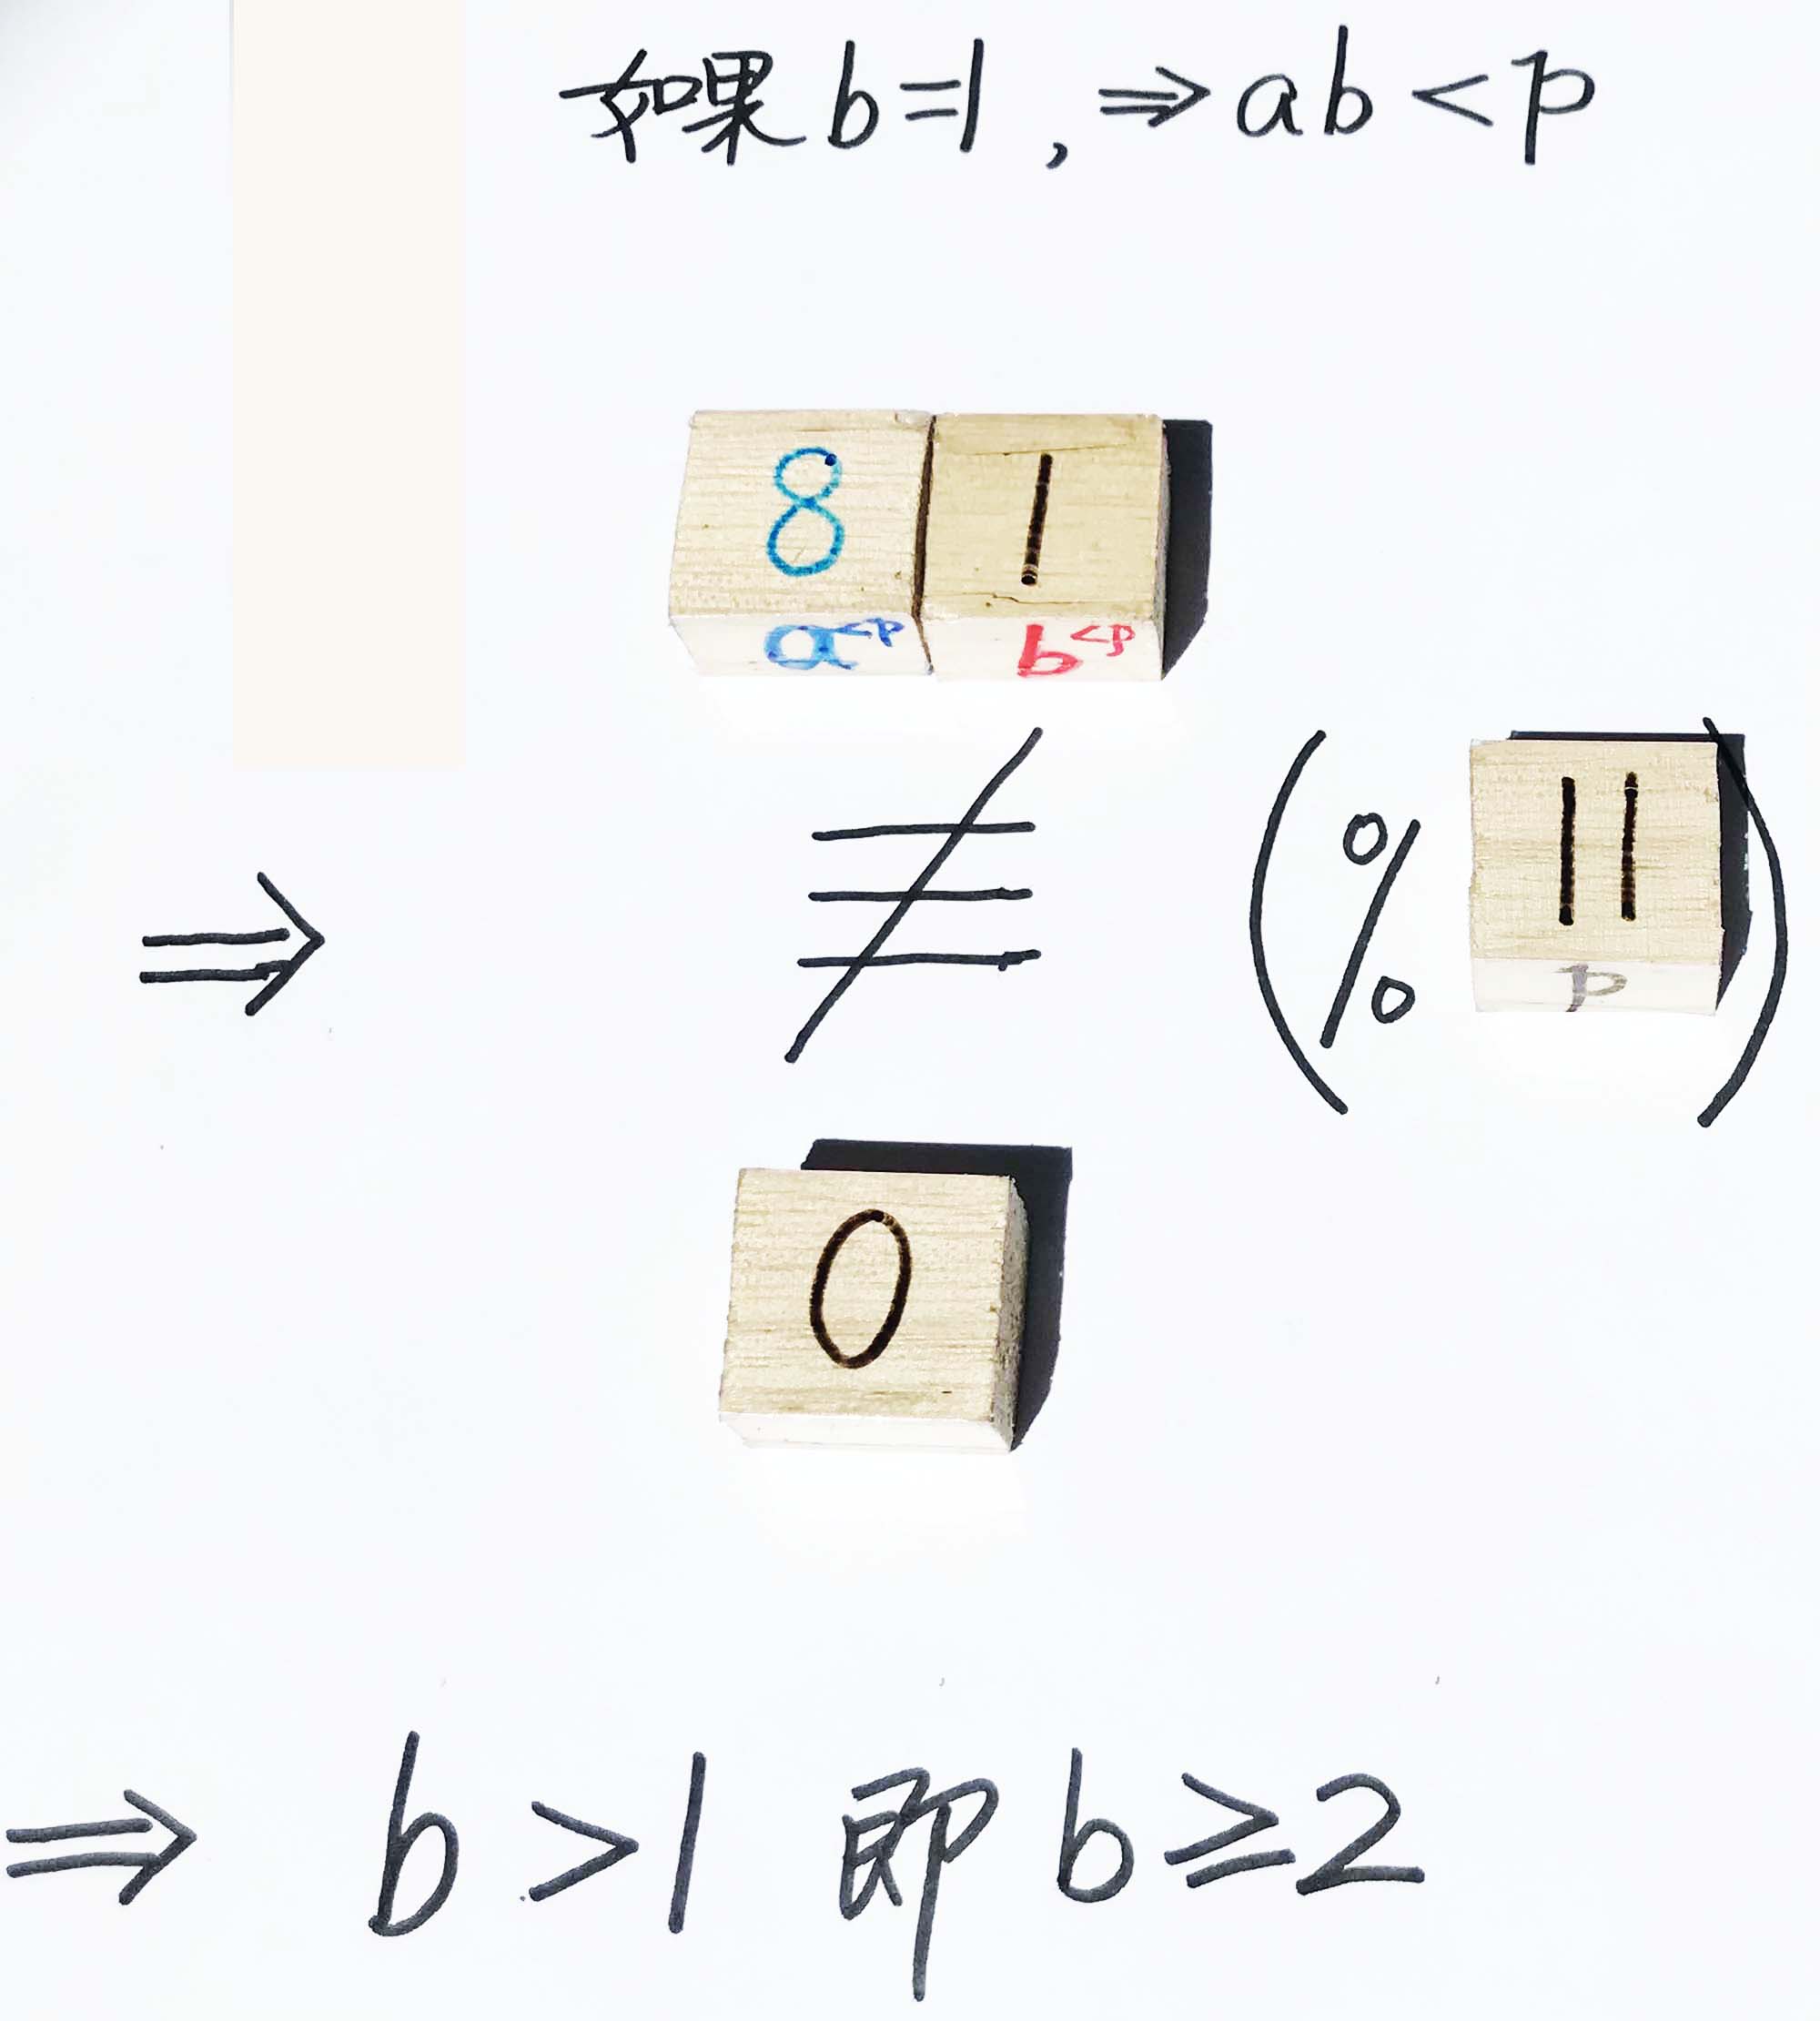 如果 b=1, ⇒ ab < p
8 1
a<p b<p
⇒ ≢ (% 11)
p
0
⇒ b > 1 即 b ≥ 2